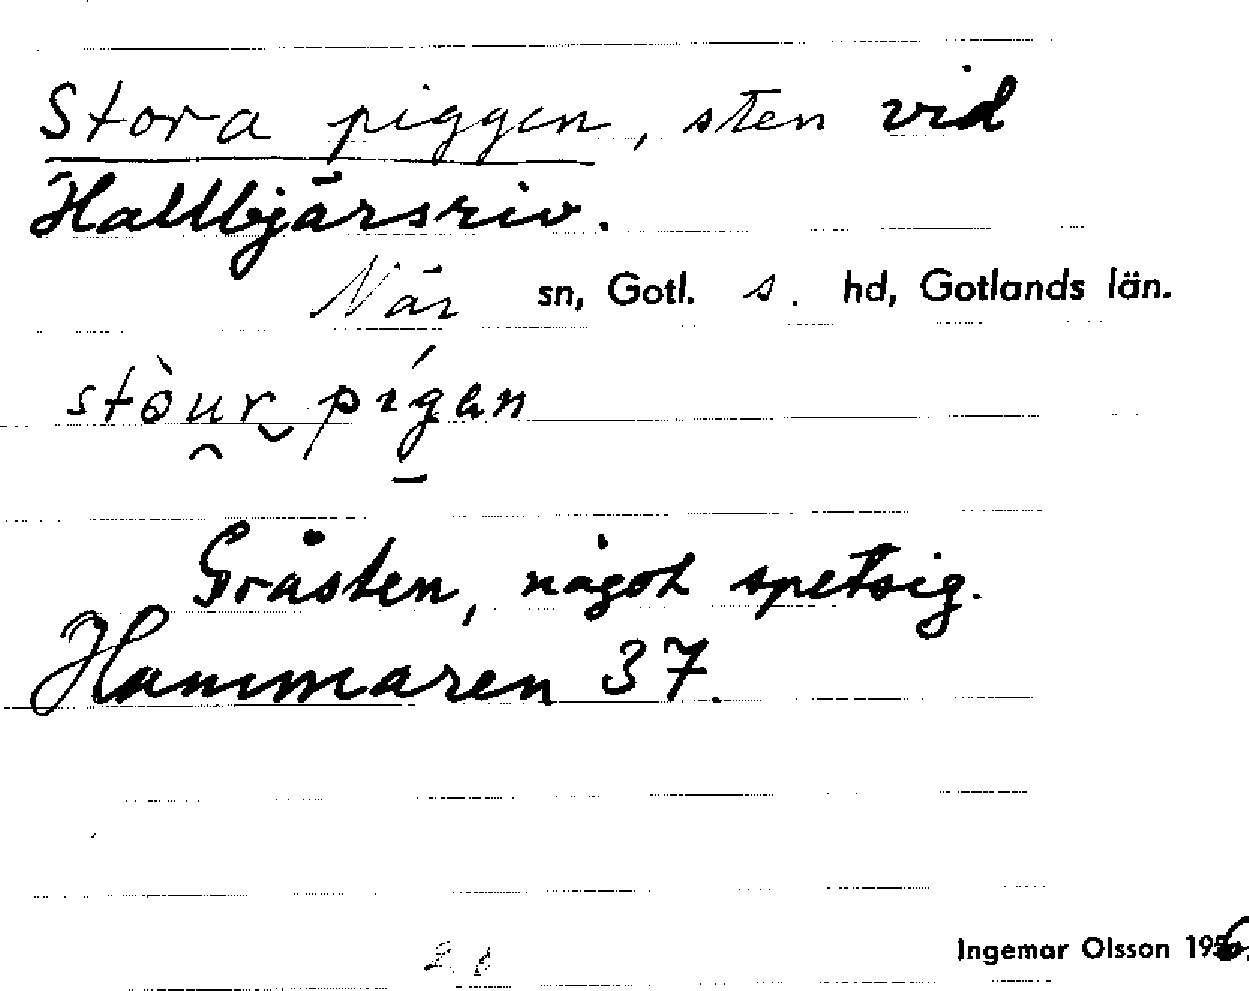 Stora piggen, sten vid
Hallbjärsriv.
När sn, Gotl. s. hd, Gotlands län.
stòur pígan
Gråsten, något spetsig.
Hammaren 37.
Ingemar Olsson